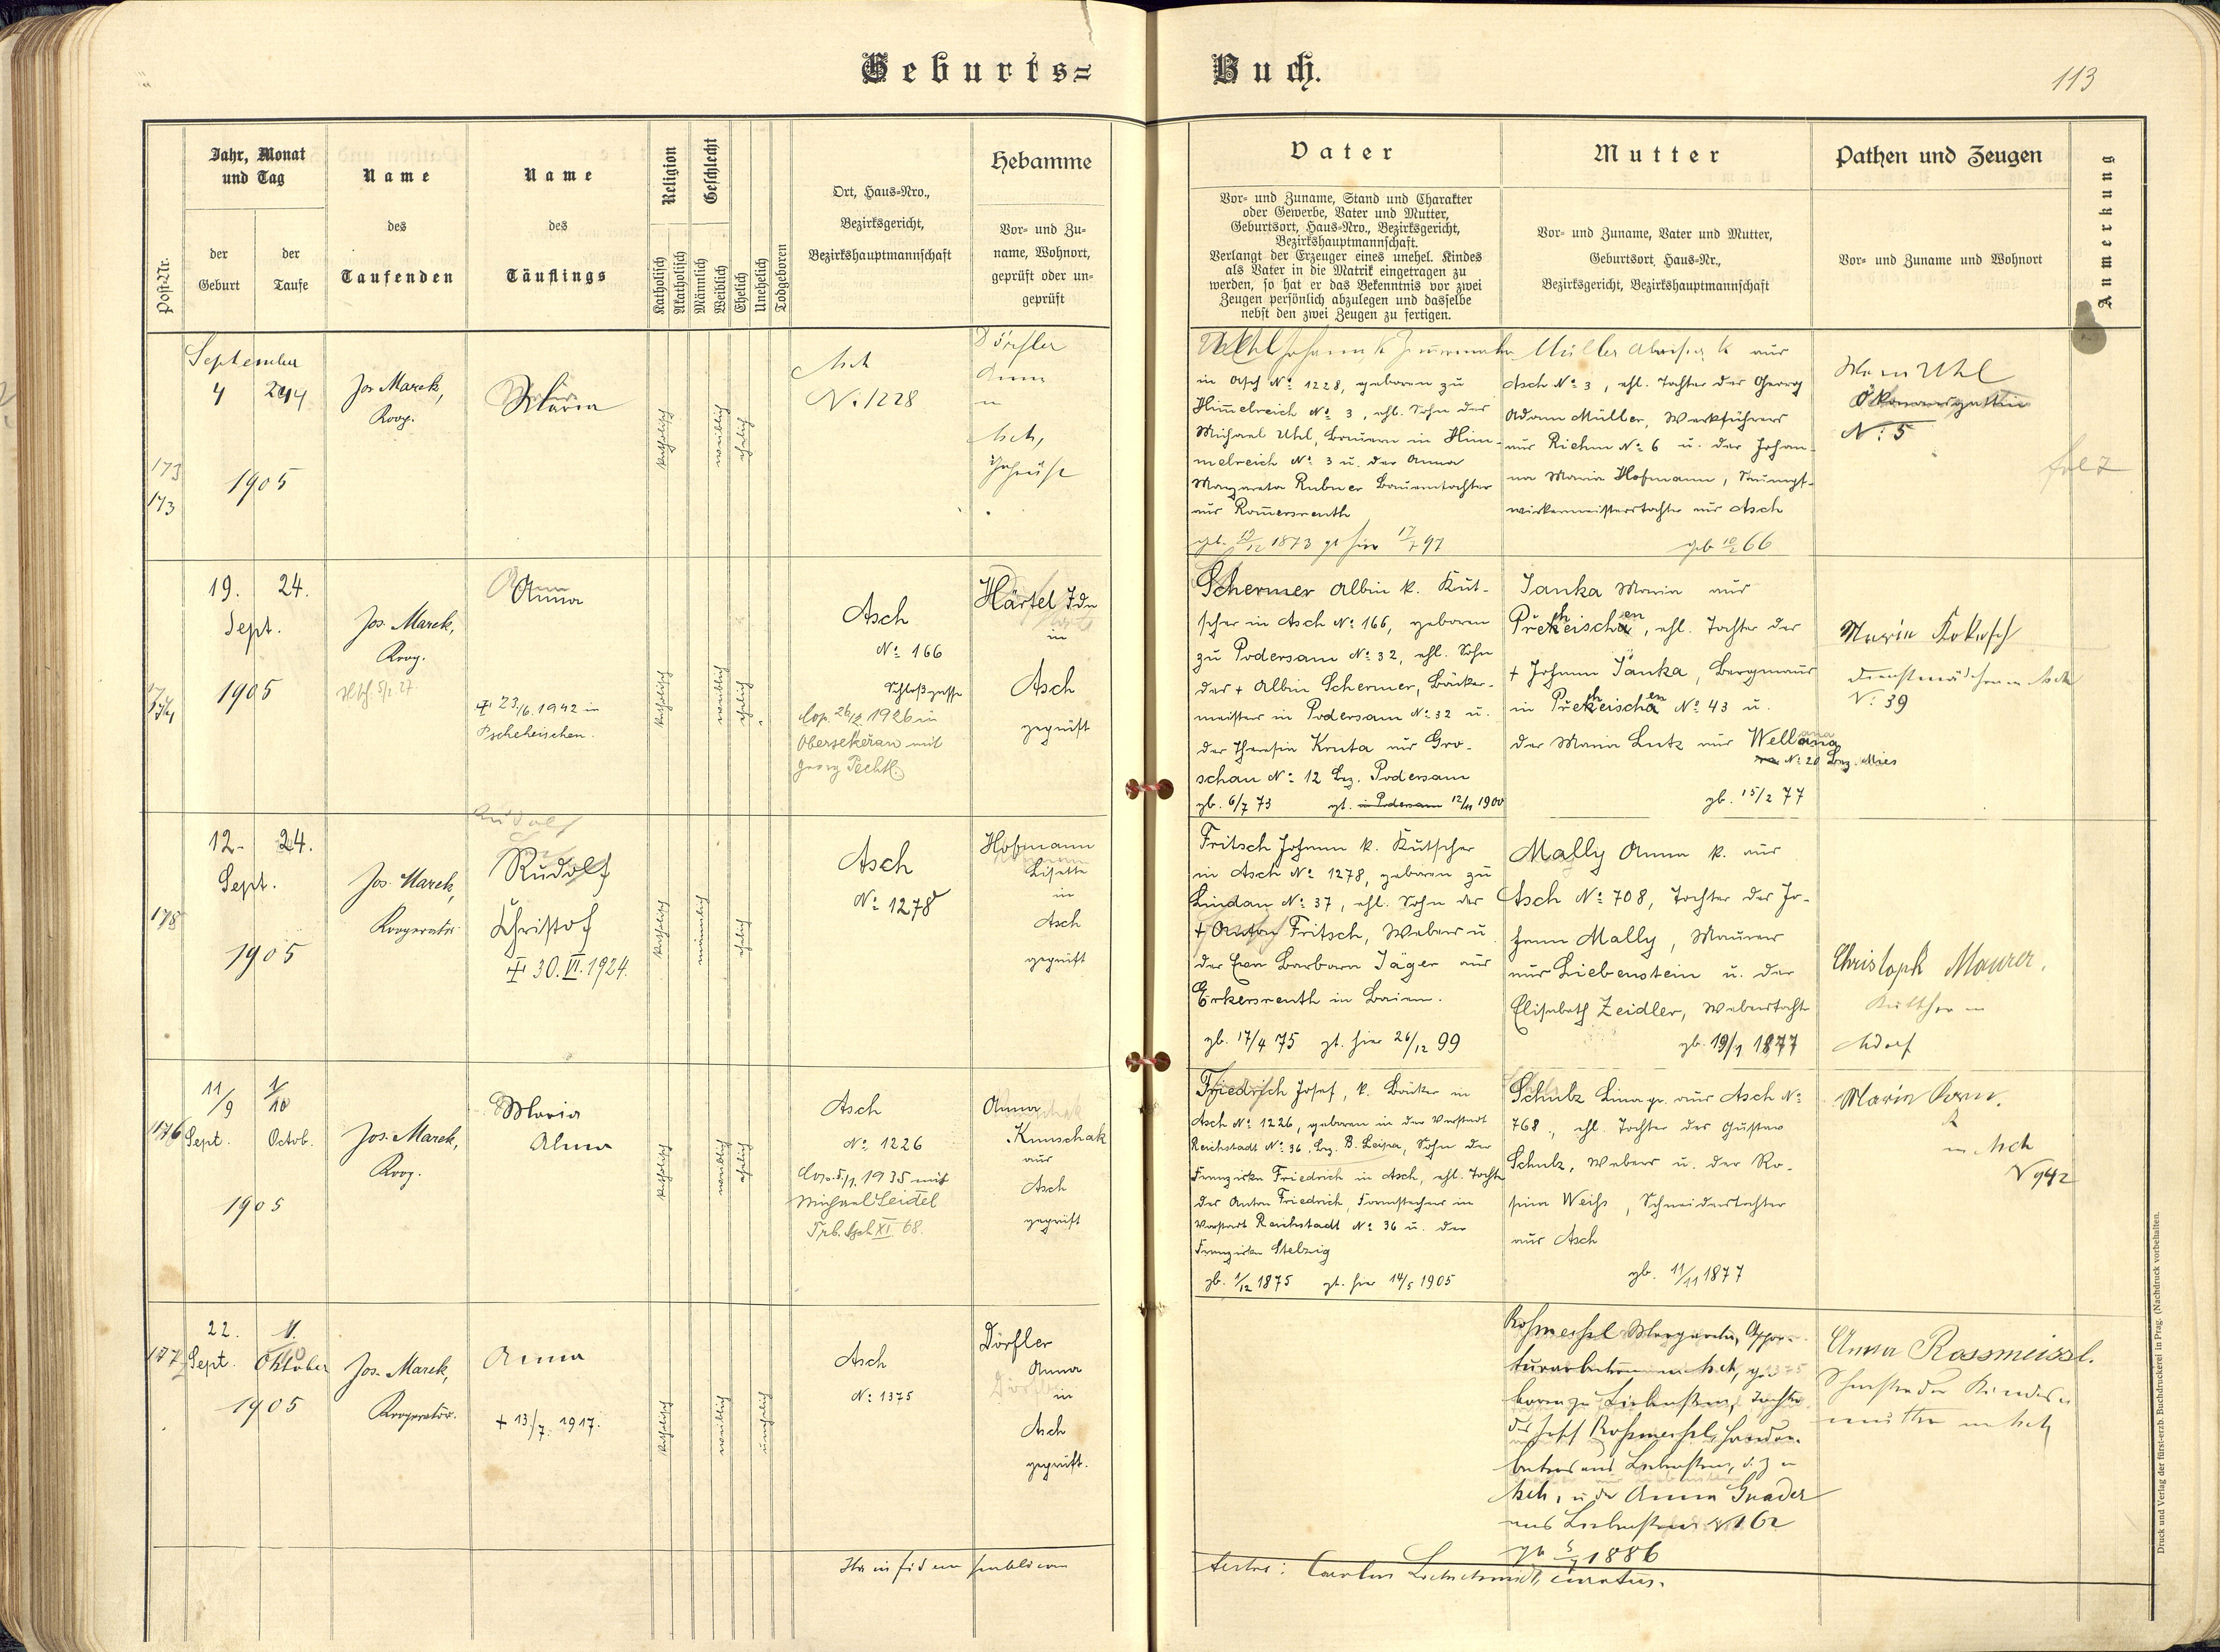 Geburts=
Buch.
113
Post-Nr.
Jahr, Monat
und Tag
der
Geburt
der
Taufe
Name
des
Taufenden
Name
des
Täuflings
Religion
Katholisch
Akatholisch
Geschlecht
Männlich
Weiblich
Ehelich
Unehelich
Todgeboren
Ort, Haus=Nro.,
Bezirksgericht,
Bezirkshauptmannschaft
Hebamme
Vor= und Zu=
name, Wohnort,
geprüft oder un=
geprüft
Vater
Vor= und Zuname, Stand und Charakter
oder Gewerbe, Vater und Mutter,
Geburtsort, Haus=Nro., Bezirksgericht,
Bezirkshauptmannschaft.
Verlangt der Erzeuger eines unehel. Kindes
als Vater in die Matrik eingetragen zu
werden, so hat er das Bekenntnis vor zwei
Zeugen persönlich abzulegen und dasselbe
nebst den zwei Zeugen zu fertigen.
Mutter
Vor= und Zuname, Vater und Mutter,
Geburtsort, Haus=Nr.,
Bezirksgericht, Bezirkshauptmannschaft
Pathen und Zeugen
Vor= und Zuname und Wohnort
Anmerkung
173
173
September
4
24
1905
Jos. Marek,
Koop.
Maria
katholisch
weiblich
ehelich
Asch
N: 1228
Dörfler
Anna
in
Asch,
geprüft
Uhl Johann k. Zimmermann
in Asch No 1228, geboren zu
Himmelreich No 3, ehl. Sohn des
Michael Uhl, Bauern in Him-
melreich No 3 u. der Anna
Margareta Rubner Bauerntochter
aus Rommersreuth
gb. 1873 gt hier 17/7 97
Müller k aus
Asch No 3, ehl. Tochter des Georg
Adam Müller, Werkführers
aus No 6 u. der Johan-
na Maria Hofmann, Strumpf-
wirkermeisterstochter aus Asch
geb 10/2 66
Uhl
Ökonomsgattin
N: 5
174
19. 24.
Sept.
1905
Jos. Marek,
Koop.
5/2 27.
Anna
23./6. 1942 in
Pscheheischen.
katholisch
weiblich
ehelich
Asch
No 166
Schloßgasse
Cop. 26/2. 1926 in
Obersekeřan mit
Georg Pechtl.
Härtel Ida
in
Asch
geprüft
Schermer Albin k. Kut-
scher in Asch No 166, geboren
zu Podersam No 32, ehl. Sohn
des + Albin Schermer, Bäcker-
meister in Podersam No 32 u.
der Theresia Kruta aus Gro-
schau No 12 Bez. Podersam
gb. 6/7 73 gt. in Podersam 12/11 1900
Janka Maria aus
Přeheischen, ehl. Tochter des
+ Johann Janka, Bergmanns
in Přeheischen No 43 u.
der Maria Lutz aus Wellana
No 20 Bez. Mies
gb. 15/2 77
Maria Kokosch
Dienstmädchen in Asch
N: 39
178
12. 24.
Sept.
1905
Jos. Marek,
Kooperator
Rudolf
Christof
30. VI. 1924.
katholisch
männlich
ehelich
Asch
No 1278
Hofmann
Lisette
in
Asch
geprüft
Fritsch Johann k. Kutscher
in Asch No 1278, geboren zu
Lindau No 37, ehl. Sohn des
+ Anton Fritsch, Webers u.
der Eva Barbara Jäger aus
Erkersreuth in Baiern.
gb. 17/4 75 gt. hier 26/12 99
Mally Anna k. aus
Asch No 708, Tochter des Jo-
hann Mally, Maurers
aus Liebenstein u. der
Elisabeth Zeidler, Weberstocht
gb. 19/1 1877
Christoph Maurer,
Kutscher in
Adorf
176
11/9
1/10
Sept.
Octob.
1905
Jos. Marek,
Koop.
Maria
Alma
katholisch
weiblich
ehelich
Asch
No 1226
Cop. 5/1. 1935 mit
Michael Seidel
Trb. Asch XI. 68.
Anna
Kunschak
aus
Asch
geprüft
Friedrich Josef, k. Bäcker in
Asch No 1226, geboren in der Vorstadt
Reichstadt No 36, Bez. B. Leipa, Sohn der
Franziska Friedrich in Asch, ehl. Tochter
des Anton Friedrich, Formstecher in
Vorstadt Reichstadt No 36 u. der
Franziska Stelzig
gb. 1/12 1875 gt. hier 14/5 1905
Schulz Lina gr. aus Asch No
768, ehl. Tochter des Gustav
Schulz, Webers u. der Ro-
sina Weiß, Schneiderstochter
aus Asch
gb. 11/11 1877
Maria
in Asch
N 942
177
22.
1.
10
Sept.
Oktober
1905
Jos. Marek,
Kooperator.
Anna
+ 13./7. 1917.
katholisch
weiblich
unehelich
Asch
No 1375
Dörfler
Anna
in
Asch
geprüft.
Roßmeißl Margareta, Appre-
turarbeiterin in Asch, ge-
boren zu Liebenstein, Tochter
des Josef Roßmeißl, Handar-
beiters aus Liebenstein, d. Z in
Asch, u. der Anna Gnader
aus Liebenstein N 162
gb 1886
Anna Rossmeissl.
Schwester der Kindes-
mutter in Asch
Ita in fidem publicam
testor:
curatus.
Druck und Verlag der fürst-erzb. Buchdruckerei in Prag. (Nachdruck vorbehalten.